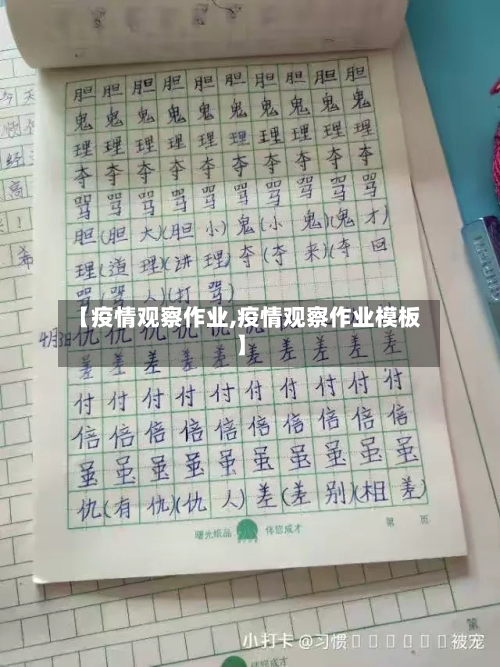 胆 胆 胆 胆 胆 胆 胆 胆 胆
鬼 鬼 鬼 鬼 鬼 鬼 鬼 鬼 鬼
理 理 理 理 理 理 理 理 理
夺 夺 夺 夺 夺 夺 夺 夺 夺
骂 骂 骂 骂 骂 骂 骂 骂 骂
胆(胆大)(胆小)鬼(小鬼)(鬼才)
理(道理)(讲理)夺(夺来)(夺回
骂(骂人)(打骂)
【疫情观察作业,疫情观察作业模板】
差 差 差 差 差 差 差 差 差
付 付 付 付 付 付 付 付 付
倍 倍 倍 倍 倍 倍 倍 倍 倍
虽 虽 虽 虽 虽 虽 虽 虽 虽
仇(有仇)(仇人)差(差别)(相差)
曙光纸品 伴您成才
第 页
第
小打卡 @习惯 被宠
伴您成才